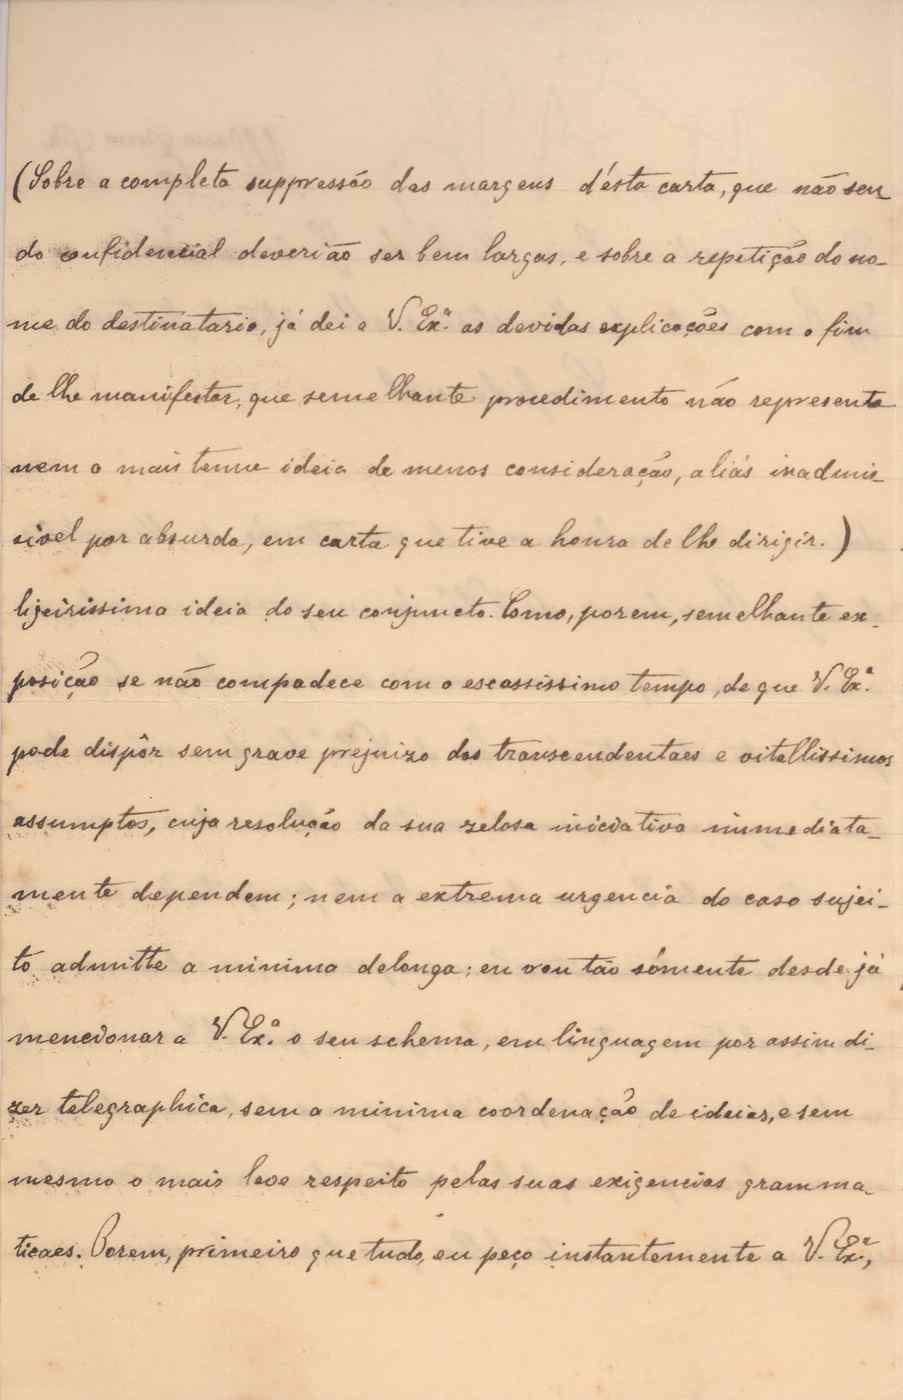 (Sobre a completa suppressão das margens d'ésta carta, que não sen
do confidencial deverião ser bem largas, e sobre a repetição do no-
me do destinatario, já dei a V. Ex.ª as devidas explicações com o fim
de lhe manifestar, que semelhante procedimento não representa
nem a mais tenue ideia de menos consideração, aliás inadmis-
sivel por absurda, em carta que tive a honra de lhe dirigir.)
lijeirissima ideia do seu conjuncto. Como, porem, semelhante ex-
posição se não compadece com o escassissimo tempo, de que V. Ex.ª
pode dispôr sem grave prejuizo dos transcendentaes e vitallissimos
assumptos, cuja resolução da sua zelosa iniciativa immediata-
mente dependem; nem a extrema urgencia do caso sujei-
to admitte a minima delonga; eu vou tão sómente desde já
mencionar a V. Ex.ª o seu schema, em linguagem por assim di-
zer telegraphica, sem a minima coordenação de ideias, e sem
mesmo o mais leve respeito pelas suas exigencias gramma-
ticaes. Porem, primeiro que tudo, eu peço instantemente a V. Ex.ª,